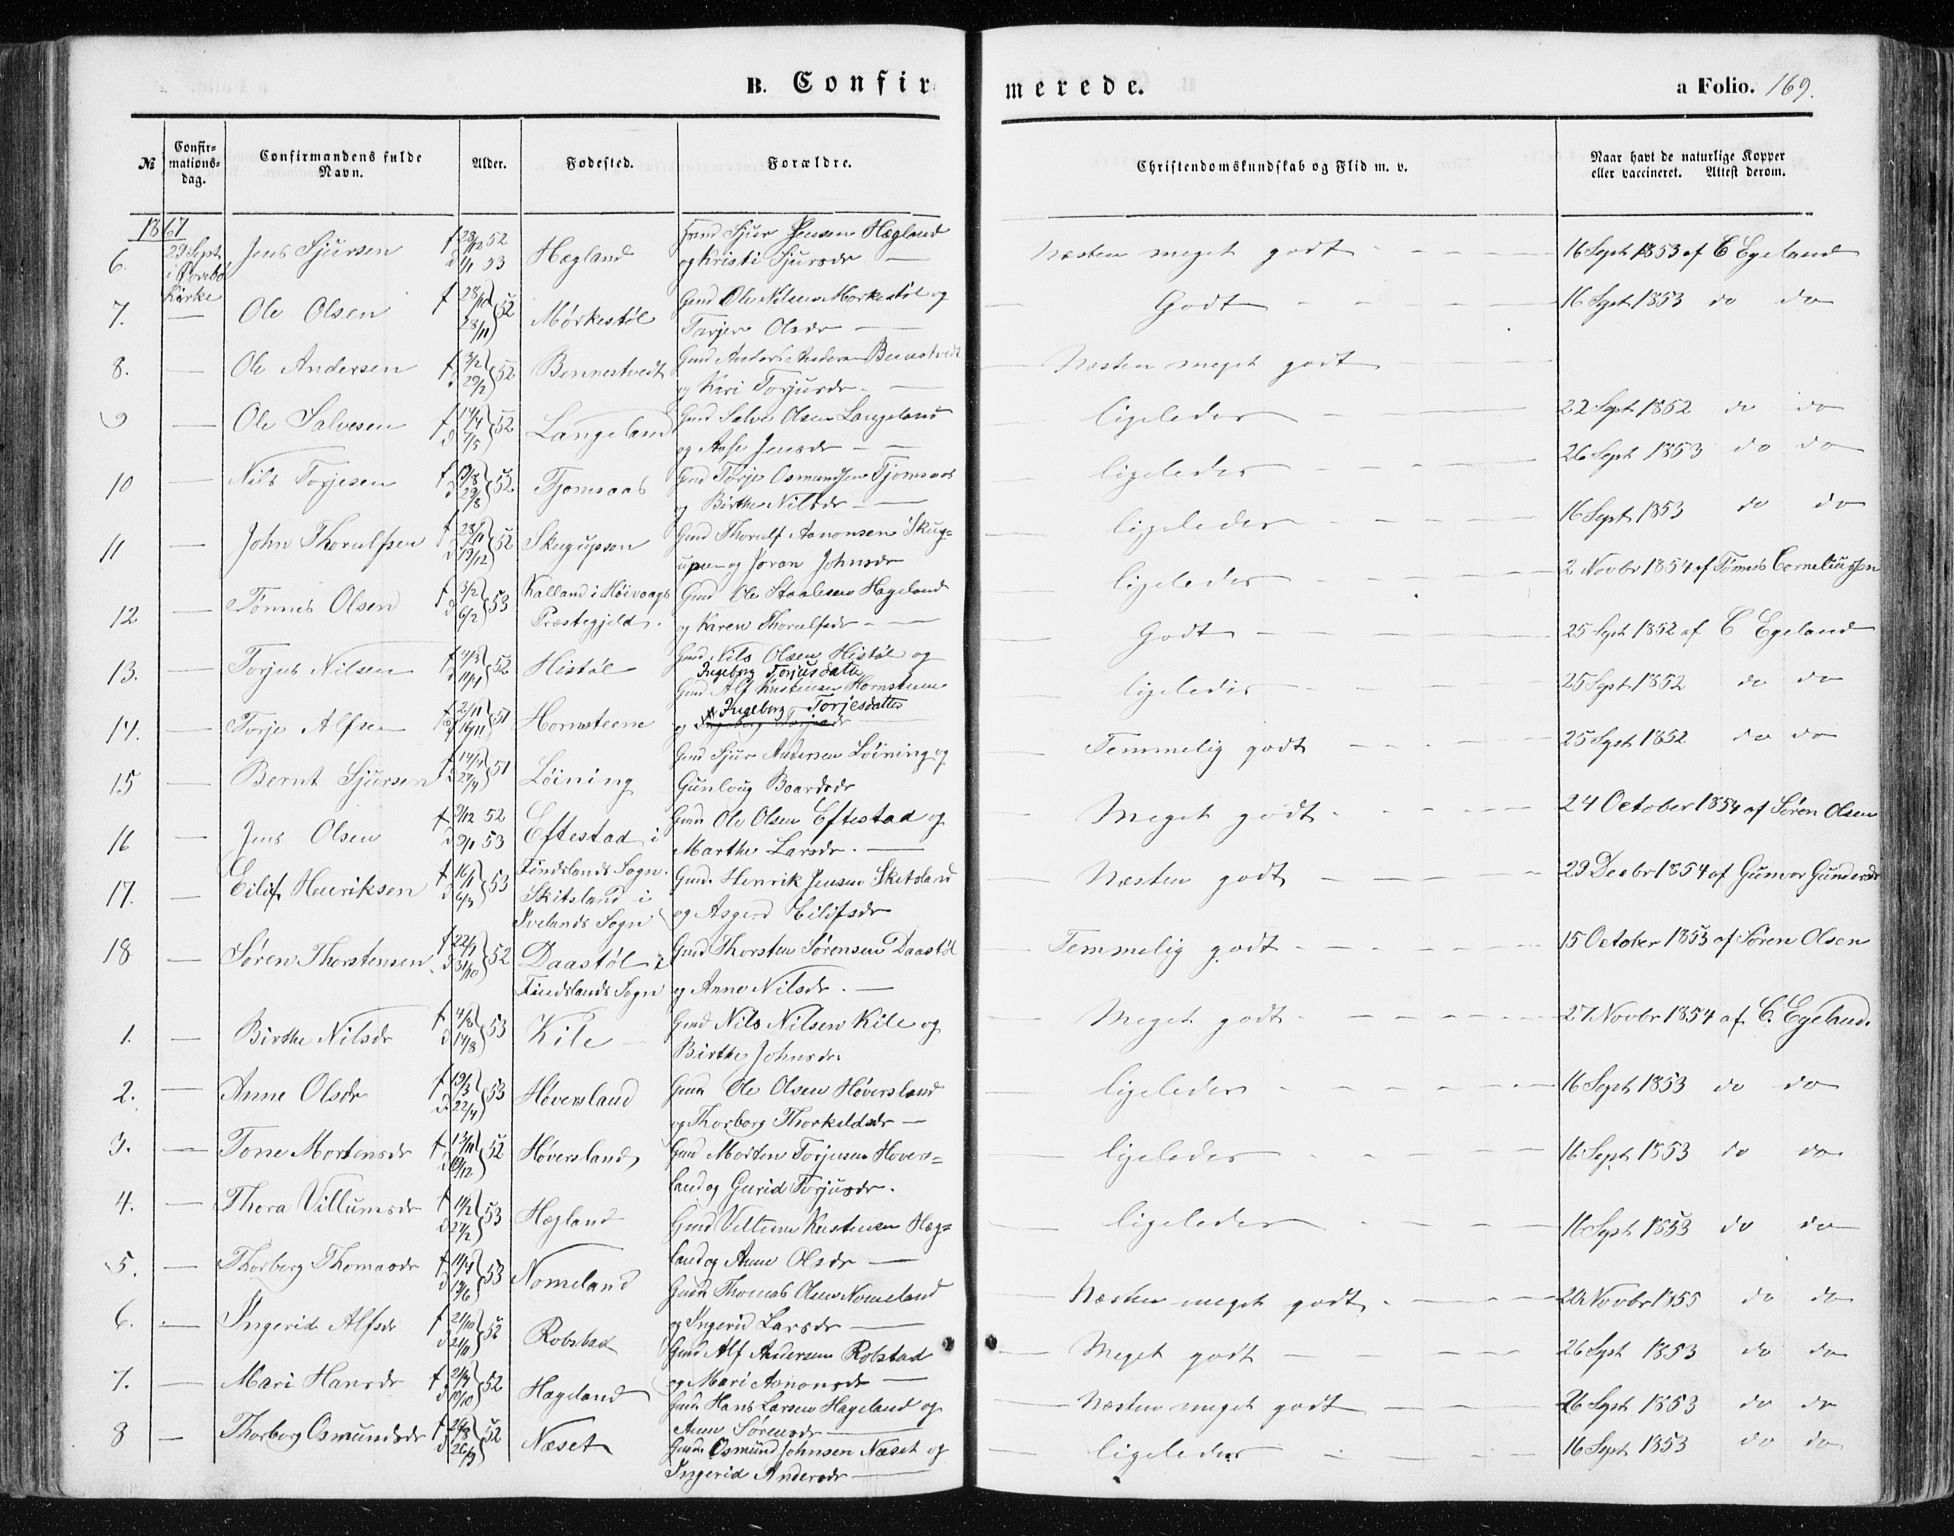 B. Confirmerede. a Folio. 169.
№ Confirmationsdag. Confirmandens fulde Navn. Alder. Fødested. Forældre. Christendomskundskab og Flid m. v. Naar havt de naturlige Kopper eller vaccineret. Attest derom.
1867
6. 29 Sept i Kirke Jens Sjursen f 52 d 1/1 53 Hægland Gmd Sjur Jensen Hægland og Kristi Sjursdr — Næsten meget godt - - - 16 Sept 1853 af C Egeland
7. — Ole Olsen f 28/11 52 Mørkestøl Gmd Ole Nilsen Mørkestøl og Torjer Olsdr — — Godt - - - 16 Sept 1853 do do
8. — Ole Andersen f 3/2 d 29/2 52 Bennestvedt Gmd Anders Andersen Bennestvedt og Kari Torjusdr. — Næsten meget godt
9 — Ole Salvesen f 17/4 d 7/5 52 Langeland Gmd Salve Olsen Langeland og Aase Jensdr — ligeledes - - - 22 Sept 1852 do do
10 — Nils Torjesen f 19/8 d 29/8 52 Tjomsaas Gmd Torje Osmundsen Tjomsaas og Birthe Nilsdr — ligeledes 26 Sept 1853 do do
11 — John Thorulfsen f 23/11 d 19/12 52 Skugupson Gmd Thorulf Aanonsen Skugupsen og Joran Johnsdr ligeledes - - - 16 Sept 1853 do do
12 — Tønnes Olsen f 3/2 d 6/2 53 Kalland i Høivaags Præstegjeld. Gmd Ole Staalesen Hageland og Karen Thorulfsdr. — ligeledes - - - 2 Novbr 1854 af Tønnes Corneliussen
13. — Torjus Nilsen 52 Histøl Gmd Nils Olsen Histøl og Ingeborg Torjusdatter Godt - - - 25 Sept 1852 af C Egeland
14. — Torje Alfsen f 2/11 d 16/11 51 Hornsteene Gmd Alf Kristensen Hornsteene og Ingeborg Torjesdatter ligeledes 25 Sept 1852 do do
15 — Bernt Sjursen f 14/4 d 27/4 51 Løining Gmd Sjur Andersen Løining og Gunloug Baardsdr Temmelig godt - - - 25 Sept 1852 do do
16 — Jens Olsen f 9/12 52 d 9/1 53 Eftestad i Findslands Sogn. Gmd Ole Olsen Eftestad og Marthe Larsdr. — Meget godt - - - 24 October 1854 af Søren Olsen
17. — Eilif Henriksen f 16/1 d 6/3 53 Skitsland i Ivelands Sogn Gmd. Henrik Jensen Sketsland og Asgerd Eilifsdr Næsten godt - - - 29 Decbr 1854 af Gunvor Gundersdr
18 — Søren Thorstensen f 22/9 d 31/10 52 Daastøl i Findslands Sogn Gmd Thorsten Sørensen Daastøl og Anne Nilsdr. — Temmelig godt - - - 15 October 1853 af Søren Olsen
1. — Birthe Nilsdr f 4/8 d 14/8 53 Kile Gmd Nils Nilsen Kile og Birthe Johnsdr. Meget godt - - - 27 Novbr 1854 af C. Egeland.
2. — Anne Olsdr f 19/3 d 22/4 53 Høversland Gmd Ole Olsen Høversland og Thorborg Thorkeldsdr — ligeledes - - - 16 Sept 1853 do do
3. — Tone Mortensdr f 13/11 d 19/12 52 Høversland Gmd Morten Torjusen Høversland og Gurid Torjusdr. ligeledes - - - 16 Sept 1853 do do
4. — Thora Villumsdr f 11/2 d 27/2 53 Hægland Gmd Villum Kristensen Hægland og Anne Olsdr — ligeledes - - - 16 Sept 1853 do do
5. — Thorborg Thomasdr f 14/4 d 19/6 53 Nomeland Gmd Thomas Olsen Nomeland og Ingerid Larsdr — Næsten meget godt - - - 20 Novbr 1855 do do
6. — Ingerid Alfsdr f 21/10 d 21/11 52 Robstad Gmd Alf Andersen Robstad og Mari Aanonsdr — Meget godt - - - 26 Sept 1853 do do
7. — Mari Hansdr f 21/9 d 10/10 52 Hageland Gmd Hans Larsen Hageland og Anne Sørensdr — Næsten meget godt - - - 26 Sept 1853 do do
8 — Thorborg Osmundsdr f 29/8 d 26/9 52 Næset Gmd Osmund Johnsen Næset og Ingerid Andersdr — ligeledes 16 Sept 1853 do do